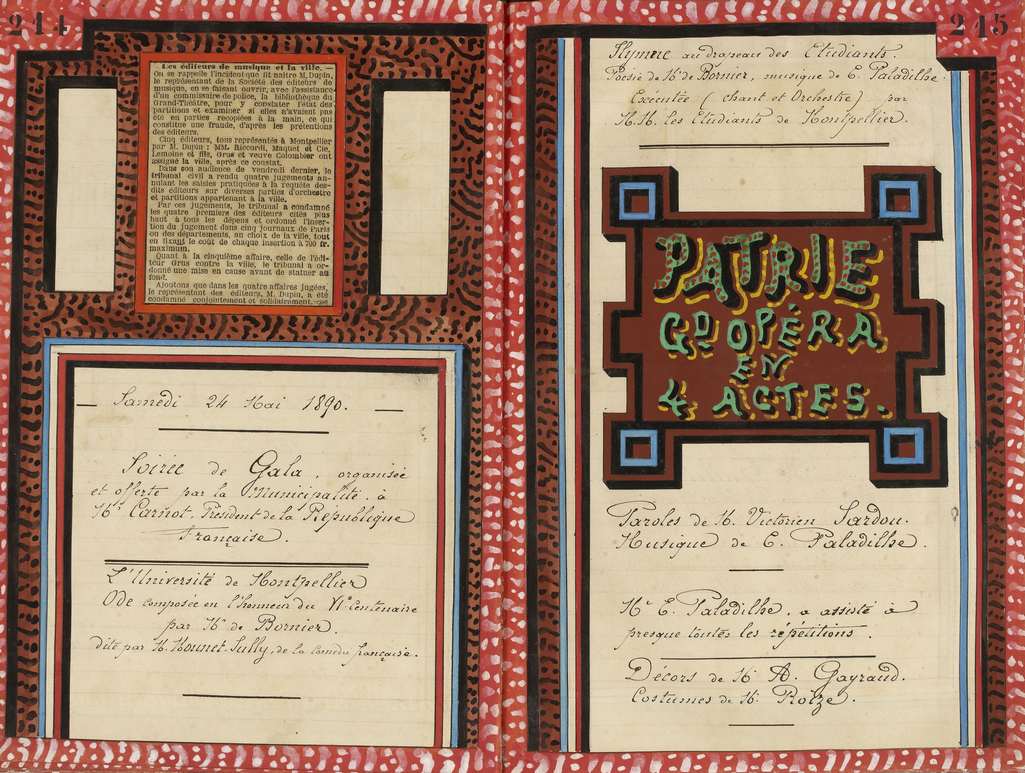 214
Les éditeurs de musique et la ville. —
On se rappelle l'incident que fit naître M. Dupin,
le représentant de la Société des éditeurs de
musique, en se faisant ouvrir, avec l'assistance
d'un commissaire de police, la bibliothèque du
Grand-Théâtre, pour y constater l'état des
partitions et examiner si elles n'avaient pas
été en parties recopiées à la main, ce qui
constitue une fraude, d'après les prétentions
des éditeurs.
Cinq éditeurs, tous représentés à Montpellier
par M. Dupin : MM. Riccordi, Maquet et Cie,
Lemoine et fils, Grus et veuve Colombier ont
assigné la ville, après ce constat.
Dans son audience de vendredi dernier, le
tribunal civil a rendu quatre jugements an-
nulant les saisies pratiquées à la requête des-
dits éditeurs sur diverses parties d'orchestre
et partitions appartenant à la ville.
Par ces jugements, le tribunal a condamné
les quatre premiers des éditeurs cités plus
haut à tous les dépens et ordonné l'inser-
tion du jugement dans cinq journaux de Paris
ou des départements, au choix de la ville, tout
en fixant le coût de chaque insertion à 700 fr.
maximum.
Quant à la cinquième affaire, celle de l'édi-
teur Grus contre la ville, le tribunal a or-
donné une mise en cause avant de statuer au
fond.
Ajoutons que dans les quatre affaires jugées,
le représentant des éditeurs, M. Dupin, a été
condamné conjointement et solidairement.
— Samedi 24 Mai 1890. —
Soirée de Gala, organisée
et offerte par la Municipalité à
Mr Carnot, Président de la République
Française.
L'Université de Montpellier
Ode composée en l'honneur du VIe Centenaire
par Mr de Bornier.
dite par M. Mounet-Sully, de la comédie française.
215
Hymne au drapeau des Etudiants
Poésie de Mr de Bornier, musique de E. Paladilhe.
Exécutée (chant et Orchestre) par
M.M. les Etudiants de Montpellier.
PATRIE
GD OPÉRA
EN
4 ACTES.
Paroles de M. Victorien Sardou.
Musique de E. Paladilhe.
Mr E. Paladilhe, a assisté à
presque toutes les répétitions.
Décors de Mr A. Gayraud.
Costumes de Mr Roize.